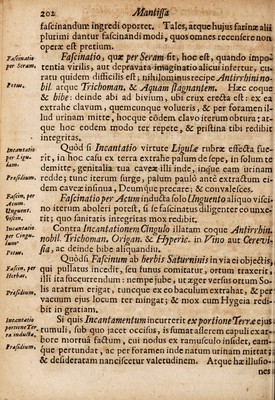 202 Mantissa
fascinandum ingredi oportet. Tales, atque hujus farinæ alii
plurimi dantur fascinandi modi, quos omnes recensere non
operæ est pretium.
Fascinatio per Seram.
Fascinatio, quæ per Seram fit, hoc est, quando impo-
tentia virilis, aut depravata imaginatio alicui infertur, cu-
ratu quidem difficilis est; nihilominus recipe Antirrhini no-
Potus.
bil. atque Trichoman. & Aquam stagnantem. Hæc coque
& bibe: deinde abi ad bivium, ubi crux erecta est: ex ea
extrahe clavum, quemcunque volueris, & per foramen il-
lud urinam mitte, hocque eodem clavo iterum obtura: at-
que hoc eodem modo ter repete, & pristina tibi redibit
integritas.
Incantatio per Ligulam.
Quòd si Incantatio virtute Ligulæ rubræ effecta fue-
rit, in hoc casu ex terra extrahe palum de sepe, in solum te
demitte, genitalia tua caveæ illi inde, usque dum urinam
Præsidium.
redde; tunc iterum surge, palum paulò antè extractum ei-
dem caveæ insinua, Deumque precare; & convalesces.
Fascinatio per Acum, Unguent. Ustion.
Fascinatio per Acum inducta solo Unguento aliquo visci-
no iterum aboleri potest, si te fascinatus diligenter eo unxe-
rit; quo sanitatis integritas redibit.
Incantatio per Cingulum Potus.
Contra Incantationem Cingulo illatam coque Antirrhin.
nobil. Trichoman. Origan. & Hyperic. in Vino aut Cerevi-
sia, ac deinde bibe aliquandiu.
Fascin. per Herbas.
Quòds Fascinum ab herbis Saturninis in via ei objectis,
qui pullatus incedit, seu funus comitatur, ortum traxerit,
illi ita succurrendum: nempe jube, ut æger versus ortum So-
Præsidium.
lis aratrum erigat, tuncque ex eo baculum extrahat, & per
vacuum ejus locum ter mingat; & mox cum Hygeia redi-
bit in gratiam.
Incantatio ex portione Terræ inducta.
Si quis Incantamentum incurrerit ex portione Terræ ejus
tumuli, sub quo jacet occisus, is sumat asserem capuli ex ar-
bore mortuâ factum, cui nodus ex ramusculo insidet, eam-
Præsidium.
que pertundat, ac per foramen inde natum urinam mittat;
& desideratam nanciscetur valetudinem. Atque hæ illusio-
nes